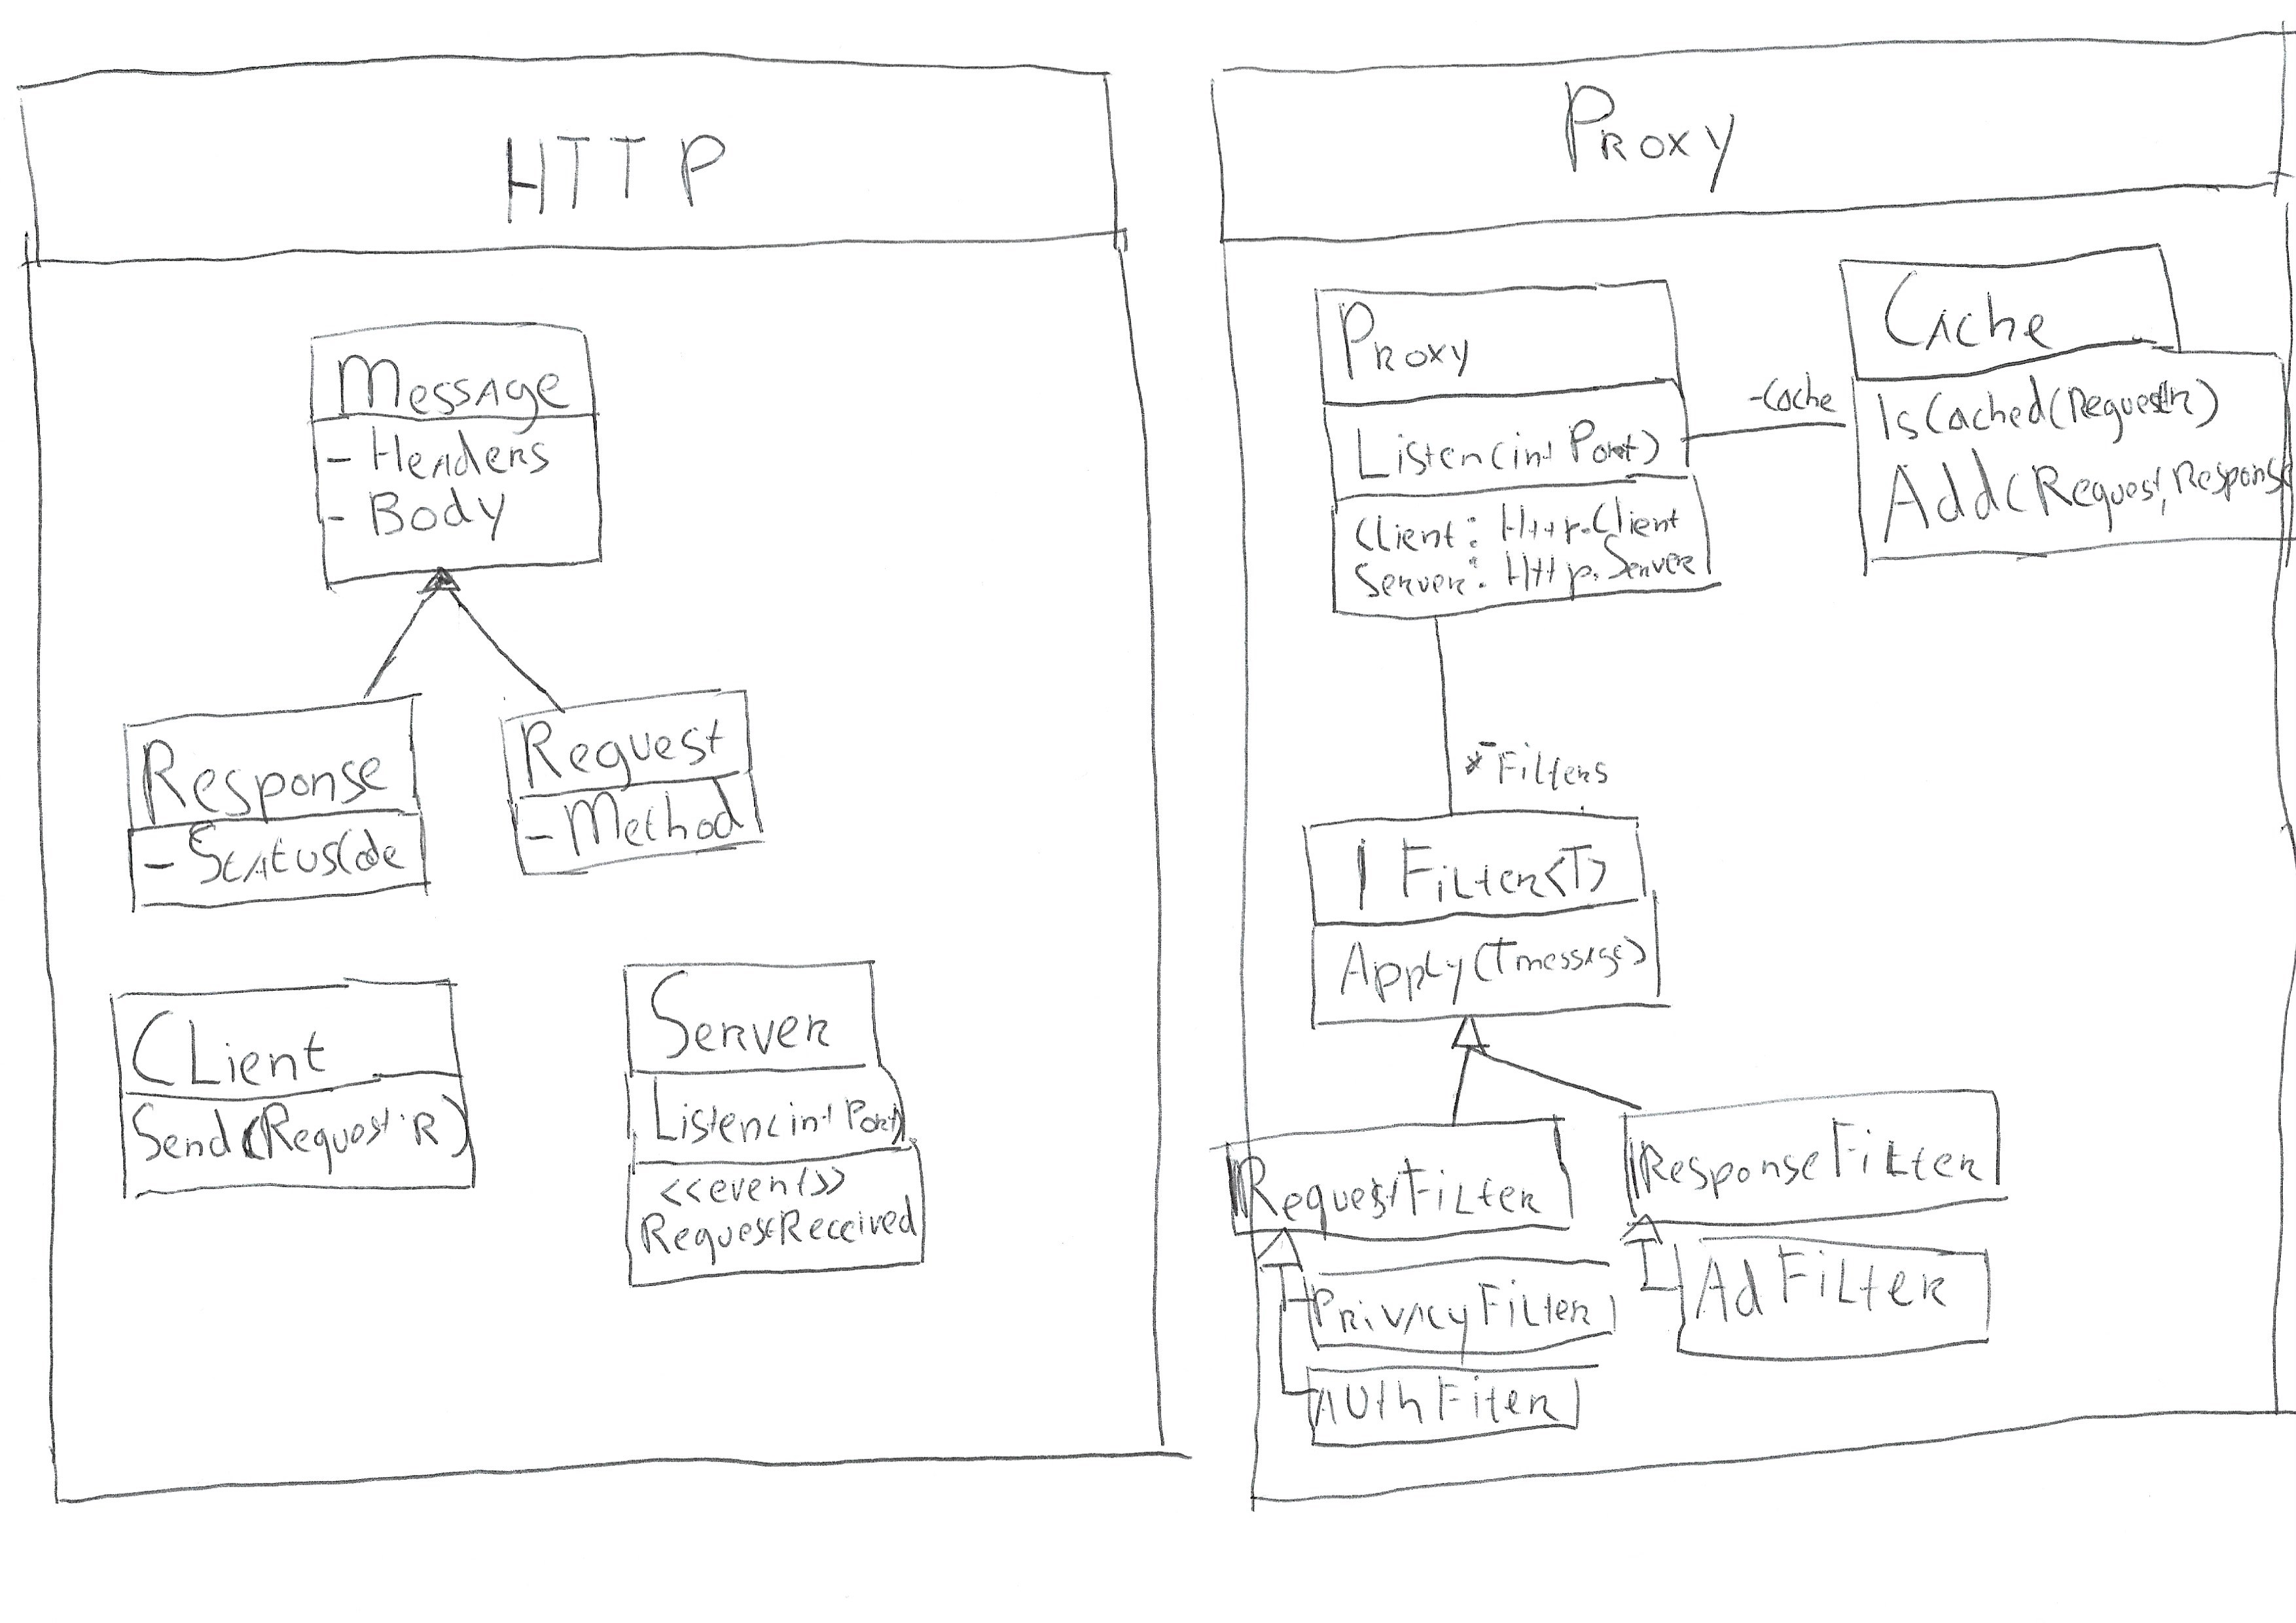 HTTP
Message
- Headers
- Body
Response
- StatusCode
Request
- Method
Client
Send(Request R)
Server
Listen(int Port)
<<event>>
RequestReceived
Proxy
Proxy
Listen(int Port)
Client: Http.Client
Server: Http.Server
-Cache
Cache
IsCached(Request R)
Add(Request, Response
* -Filters
IFilter<T>
Apply(T message)
IRequestFilter
IResponseFilter
PrivacyFilter
AdFilter
AuthFiter